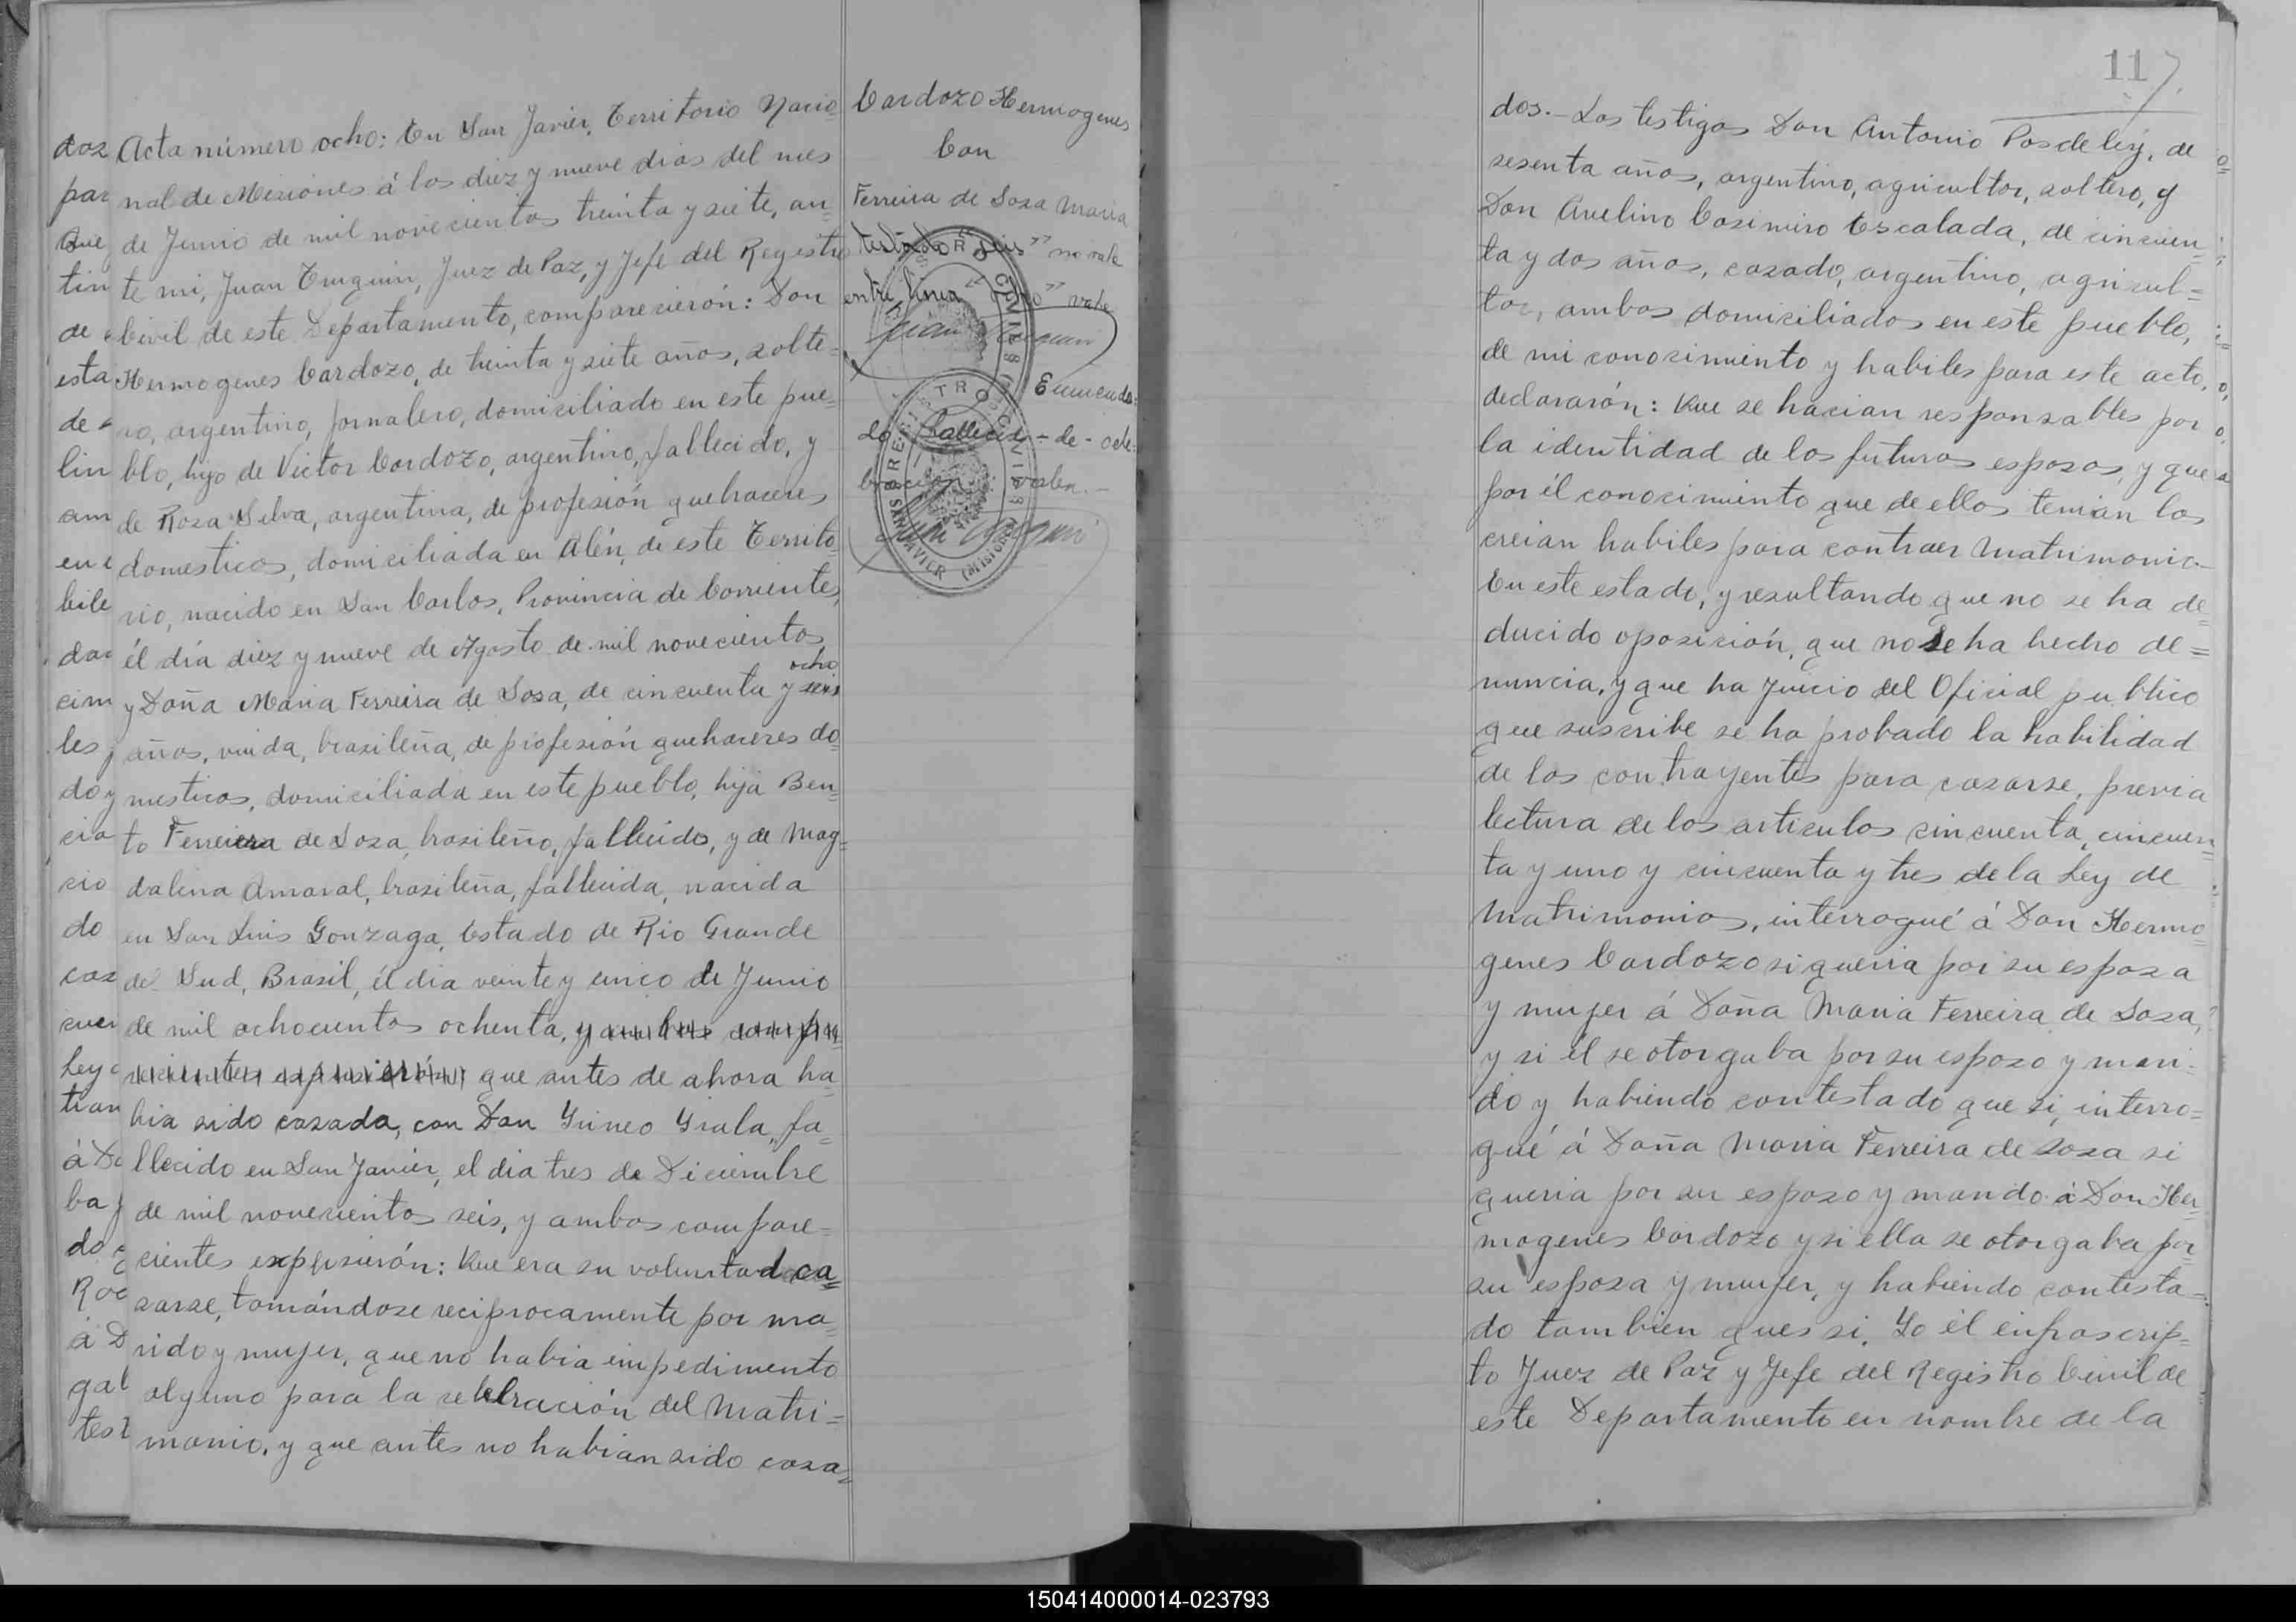 Acta número ocho: En San Javier, Territorio Nacio=
nal de Misiones á los diez y nueve dias del mes
de Junio de mil novecientos treinta y siete, an=
te mi, Juan Juez de Paz, y Jefe del Registro
Civil de este Departamento, comparecierón: Don
Hermogenes Cardozo, de treinta y siete años, solte=
ro, argentino, jornalero, domiciliado en este pue=
blo, hijo de Victor Cardozo, argentino, fallecido, y
de Rosa Silva, argentina, de profesión quehaceres
domesticos, domiciliada en Alén, de este Territo=
rio, nacido en San Carlos, Provincia de Corrientes,
él día diez y nueve de Agosto de mil novecientos
ocho
y Doña Maria Ferreira de Sosa, de cincuenta y seis
años, viuda, brasileña, de profesión quehaceres do=
mesticos, domiciliada en este pueblo, hija Ben=
to Ferreira de Sosa, brasileño, fallecido, y de Mag=
dalena Amaral, brasileña, fallecida, nacida
en San Luis Gonzaga, Estado de Rio Grande
del Sud, Brasil, él dia veinte y cinco de Junio
de mil ochocientos ochenta, y ambos compa=
recientes expusierón: que antes de ahora ha=
bia sido casada, con Don Irineo Giala, fa=
llecido en San Javier, el dia tres de Diciembre
de mil novecientos seis, y ambos compare=
cientes expusierón: Que era su voluntad ca=
sarse, tomándose reciprocamente por ma=
rido y mujer, que no habia impedimento
alguno para la celebración del Matri=
monio, y que antes no habian sido casa=
Cardozo Hermogenes
Con
Ferreira de Sosa Maria
testado "seis" no vale
entre linea "ocho" vale
Enmenda=
do fallecido - de - cele=
bración valen.-
REGISTRO CIVIL
SAN JAVIER (MISIONES)
117
dos.- Los testigos Don Antonio Posdeley, de
sesenta años, argentino, agricultor, soltero, y
Don Avelino Casimiro Escalada, de cincuen=
ta y dos años, casado, argentino, agricul=
tor, ambos domiciliados en este pueblo,
de mi conocimiento y habiles para este acto,
declararón: Que se hacian responsables por
la identidad de los futuros esposos, y que
por él conocimiento que de ellos tenian los
creian habiles para contraer Matrimonio.-
En este estado, y resultando que no se ha de=
ducido oposición, que no se ha hecho de=
nuncia, y que ha juicio del Oficial publico
que suscribe se ha probado la habilidad
de los contrayentes para casarse, previa
lectura de los articulos cincuenta, cincuen=
ta y uno y cincuenta y tres de la Ley de
Matrimonios, interrogué á Don Hermo=
genes Cardozo si queria por su esposa
y mujer á Doña Maria Ferreira de Sosa,
y si él se otorgaba por su esposo y mari=
do y habiendo contestado que si, interro=
gué á Doña Maria Ferreira de Sosa si
queria por su esposo y marido á Don Her=
mogenes Cardozo y si ella se otorgaba por
su esposa y mujer, y habiendo contesta=
do tambien ques si, Yo él infrascrip=
to Juez de Paz y Jefe del Registro Civil de
este Departamento en nombre de la
150414000014-023793